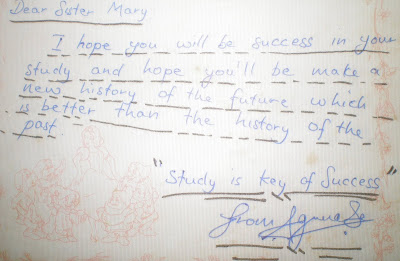 Dear Sister Mary
I hope you will be success in your
study and hope you'll be make a
new history of the future which
is better than the history of the
past.
"Study is key of Success"
from